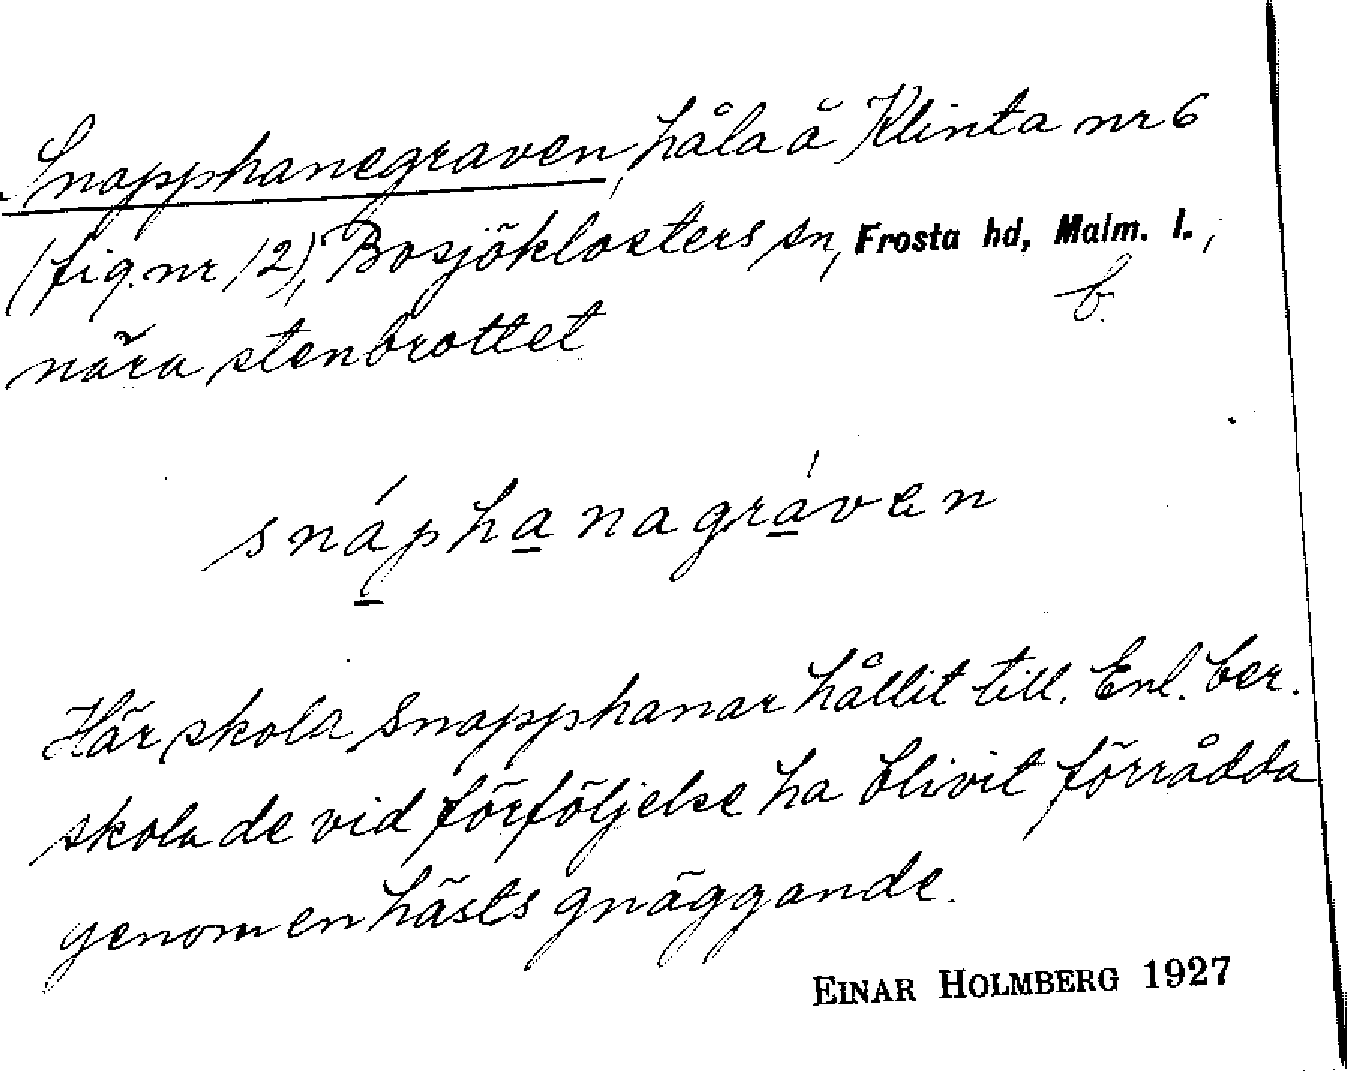 Snapphanegraven, håla å Klinta nr 6
(fig. nr 12), Bosjöklosters sn, Frosta hd, Malm. l.,
b.
nära stenbrottet
snáphanagráven
Här skola snapphanar hållit till. Enl. ber.
skola de vid förföljelse ha blivit förrådda
genom en hästs gnäggande.
EINAR HOLMBERG 1927